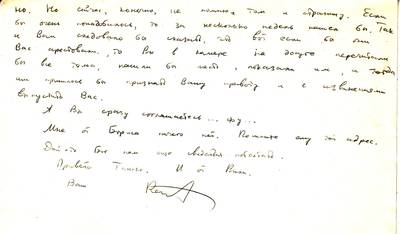 но. Но сейчас, конечно, не помню там и страницу. Если
бы очень понадобилось, то за несколько недель нашел бы. Так
и Вам следовало бы сказать, что вот если бы они
Вас арестовали, то Вы в камере на досуге перечитали
бы все тома, нашли бы место, показали им, и тогда
им пришлось бы признать Вашу правоту и с извинениями
выпустить Вас.
А Вы сразу соглашаетесь... фу...
Мне от Бориса ничего нет. Пошлите ему мой адрес.
Дай-то Бог нам еще свидеться
Привет Тане. И от Риты.
Ваш